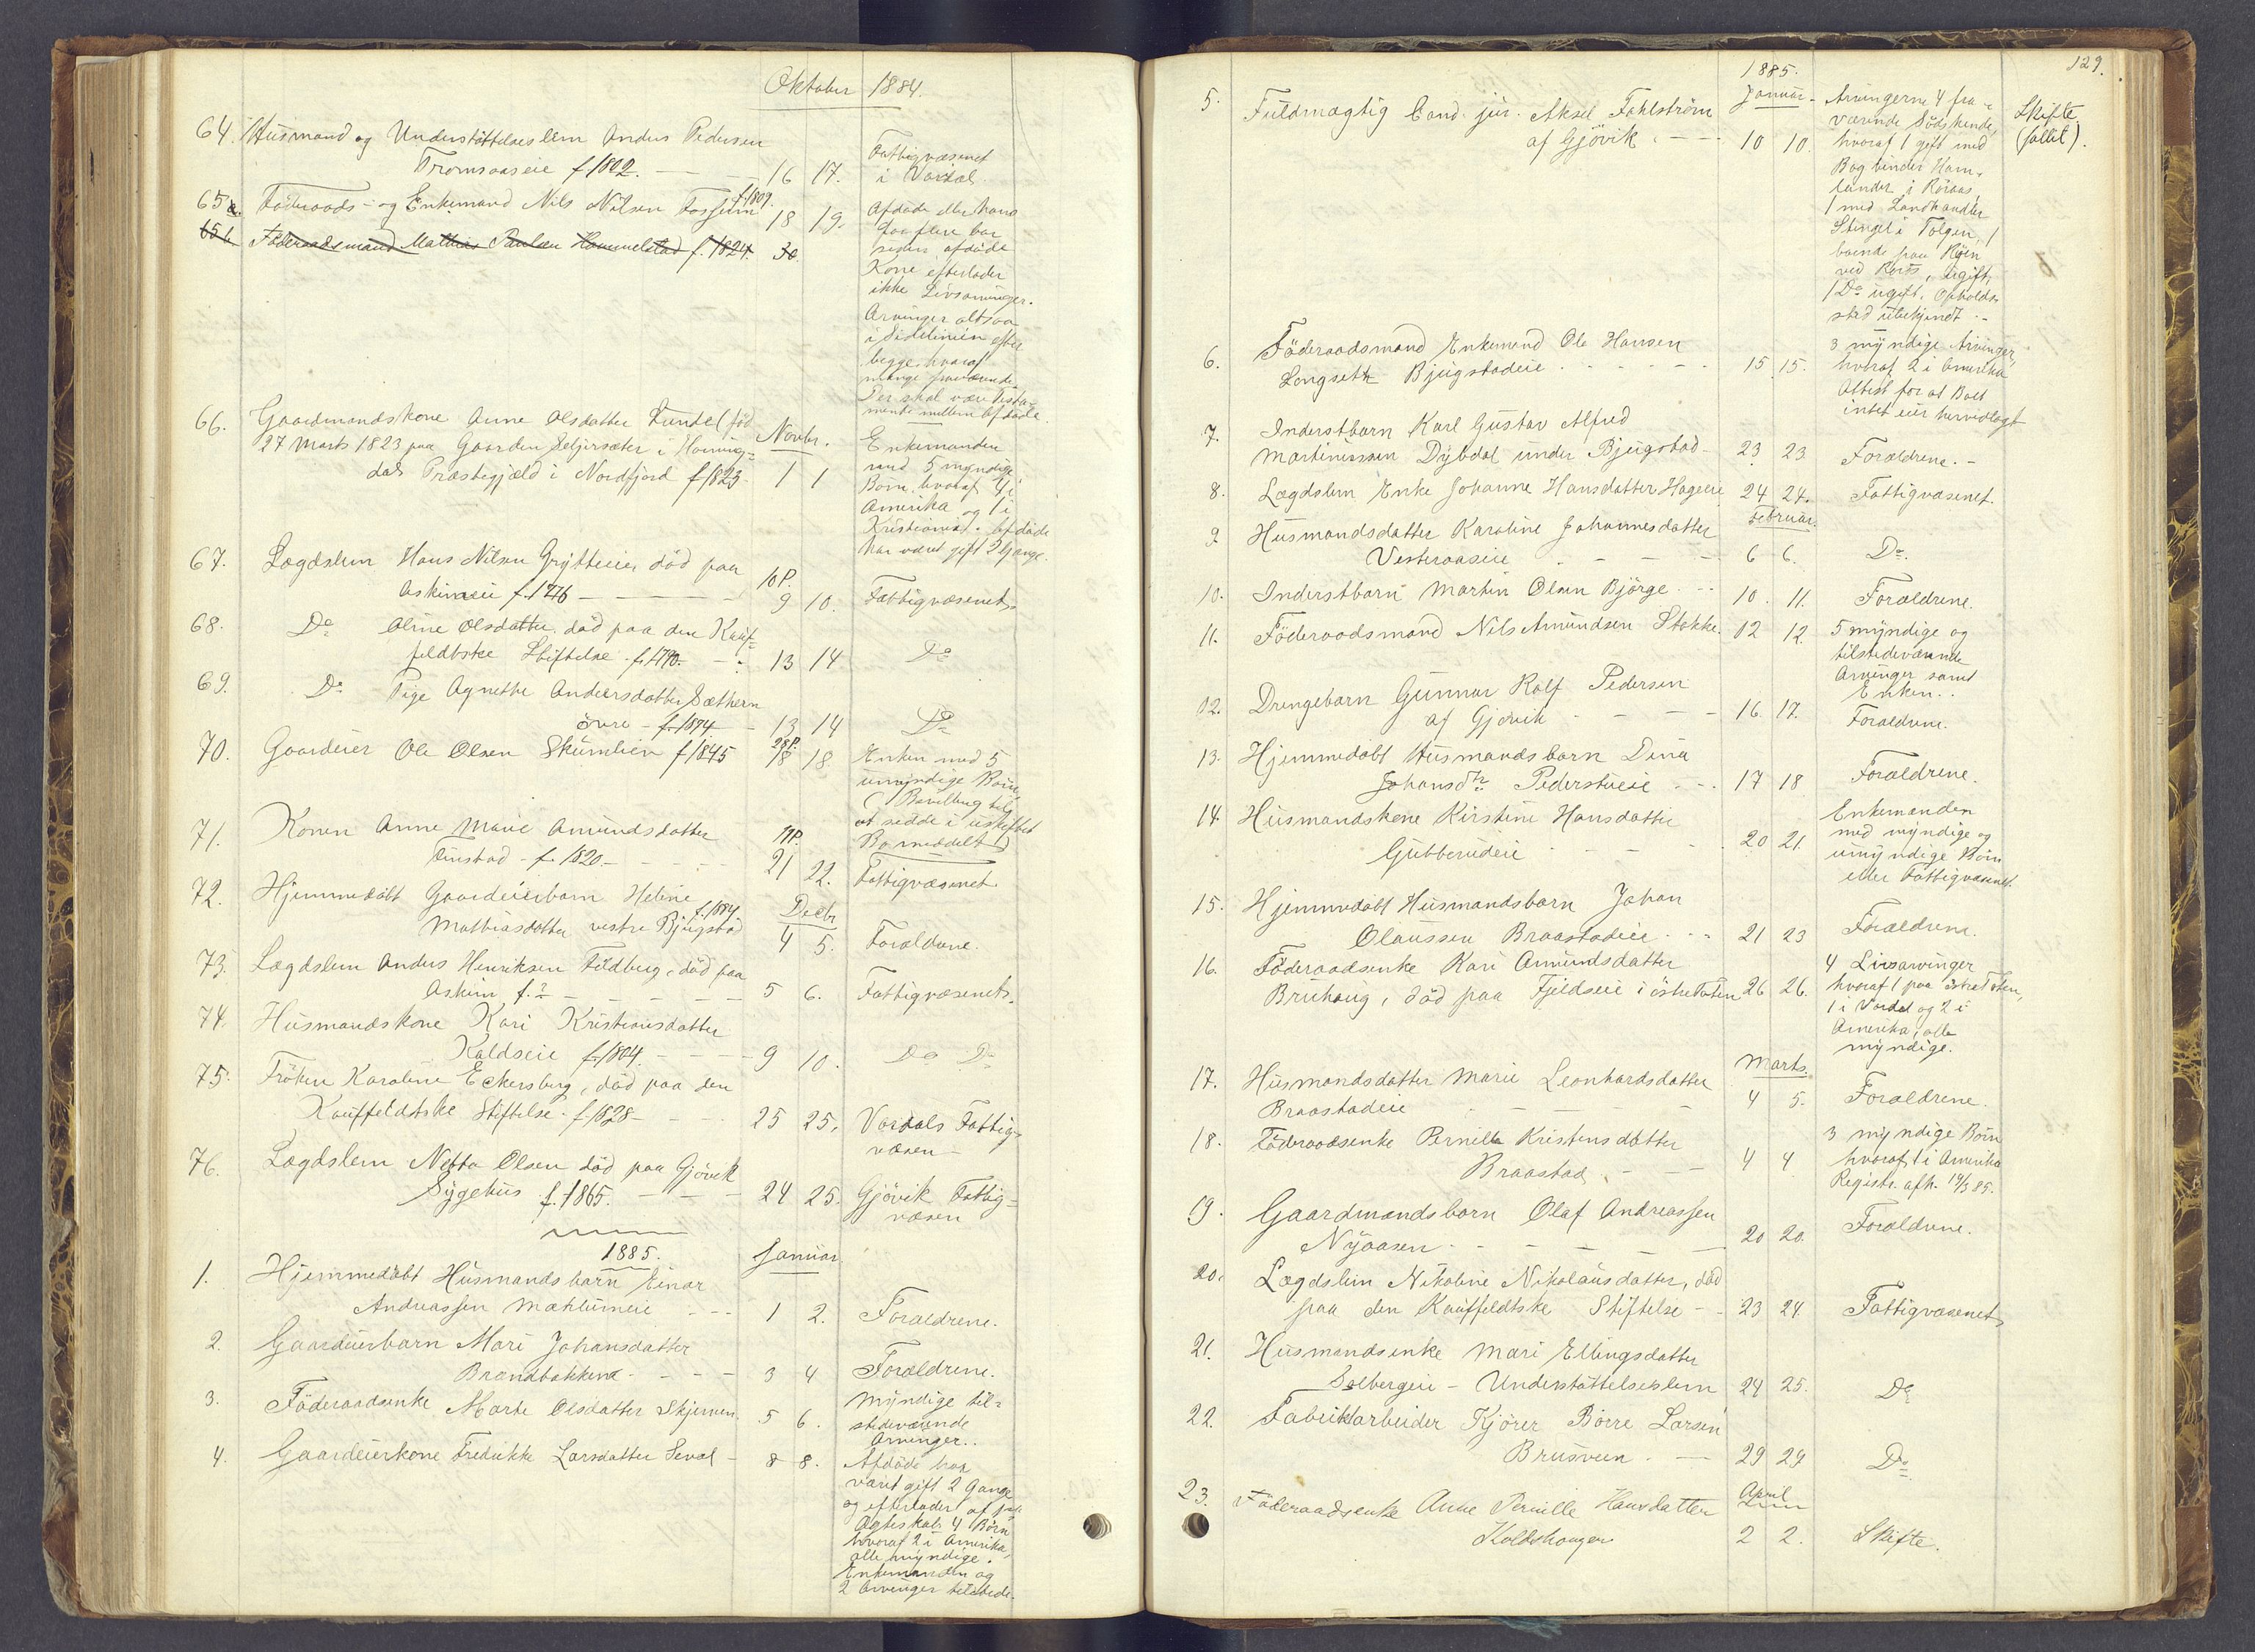 Oktober 1884.
64. Husmand og Understöttelseslem Anders Pedersen
Tromsaaseie f. 1802. 16 17. Fattigvæsenet
i Vardal.
65a. Föderaads- og Enkemand Nils Nilsen Fossum f. 1809. 18 19. Afdöde eller hans
65b. Föderaadsmand Mathias Paulsen Hammelstad f. 1824. 30.
for flere Aar
siden afdöde
Kone efterlader
ikke Livsarvinger.
Arvinger altsaa
i Sidelinien efter
begge, hvoraf
mange fraværende.
Der skal være Testa-
mente mellem Afdöde
66. Gaardmandskone Anne Olsdatter Lundel föd
27 Marts 1823 paa Gaarden Seljesæter i Horning-
dals Præstegjæld i Nordfjord f. 1823 Novbr. 1 1
Enkemanden
med 5 myndige
Börn, hvoraf 4 i
Amerika og 1 i
Kristiania. Afdöde
har været gift 2 Gange.
67. Lægdslem Hans Nilsen Grytteeie död paa
Askimeie f. 1776 10P. 9 10. Fattigvæsenet
68. Do Oline Olsdatter död paa den Kauf-
feldtske Stiftelse f. 1790. 13 14 Do
69. Do Pige Agnethe Andersdatter Sæthern
övre f. 1874 13 14 Do
70. Gaardeier Ole Olsen Skumlien f 1845 28P. 18 18. Enken med 5
umyndige Börn,
(Bevilling til
at sidde i uskiftet
Bo meddelt)
71. Konen Anne Marie Amundsdatter
Tinstad f. 1820 11P. 21 22. Fattigvæsenet
72. Hjemmedöbt Gaardeierbarn Heline
Mathiasdatter vestre Bjugstad f. 1884 Decbr 4 5. Forældrene.
73. Lægdslem Anders Henriksen Feldberg, död paa
Askim f. ? 5 6. Fattigvæsenet.
74. Husmandskone Kari Kristiansdatter
Kaldseie f. 1804. 9 10. Do Do
75. Fröken Karoline Eckersberg, död paa den
Kauffeldtske Stiftelse. f. 1828 25 25. Vardals Fattig-
væsen
76. Lægdslem Netta Olsen död paa Gjövik
Sygehus f. 1865. 24 25. Gjövik Fattig-
væsen
1885. Januar
1. Hjemmedöbt Husmandsbarn Einar
Andreassen Mæhlumeie 1 2. Forældrene.
2. Gaardeierbarn Mari Johansdatter
Brandbakken 3 4 Forældrene.
3. Föderaadsenke Marte Olsdatter Skjerven. 5 6. Myndige til-
stedeværende
Arvinger..
4. Gaardeierkone Fredrikke Larsdatter Seval 8 8. Afdöde har
været gift 2 Gange
og efterlader af
Ægteskab 4 Börn
hvoraf 2 i Amerika,
alle myndige.
Enkemanden og
2 Arvinger tilstede.
129.
1885.
Januar
5. Fuldmægtig Cand. jur. Aksel Fahlström
af Gjövik. 10 10. Arvingerne 4 fra-
værende Södskende,
hvoraf 1 gift med
Bogbinder Ham-
lander i Röraas,
1 med Landhandler
Stingel i Tolgen, 1
boende paa Röen
ved Rörs, ugift,
1 Do ugift. Opholds-
sted ubekjendt.
Skifte
(fallit).
6. Föderaadsmand Enkemand Ole Hansen
Longseth Bjugstadeie 15 15. 3 myndige Arvinger,
hvoraf 2 i Amerika
Attest for at Boet
intet eier hervedlagt
7. Inderstbarn Karl Gustav Alfred
Martiniussen Dybdal under Bjugstad 23 23 Forældrene.
8. Lægdslem Enke Johanne Hansdatter Hageeie 24 24. Fattigvæsenet.
Februar.
9 Husmandsdatter Karoline Johannesdatter
Vesteraaseie 6 6. Do.
10. Inderstbarn Martin Olsen Björge 10. 11. Forældrene.
11. Föderaadsmand Nils Amundsen Stokke. 12 12. 5 myndige og
tilstedeværende
Arvinger samt
Enken..
12. Drengebarn Gunnar Rolf Pedersen
af Gjövik 16. 17. Forældrene.
13. Hjemmedöbt Husmandsbarn Dina
Johansdtr. Pederstueie 17 18 Forældrene.
14. Husmandskone Kirstine Hansdatter
Gubberudeie 20 21. Enkemanden
med myndige og
umyndige Börn
eller Fattigvæsenet.
15. Hjemmedöbt Husmandsbarn Johan
Olaussen Braastadeie 21 23 Forældrene.
16. Föderaadsenke Kari Amundsdatter
Bruhaug, död paa Fjeldseie i östre Toten 26 26. 4 Livsarvinger
hvoraf 1 paa östre Toten,
1 i Vardal og 2 i
Amerika, alle
myndige.
Marts
17. Husmandsdatter Marie Leonhardsdatter
Braastadeie 4 5. Forældrene.
18. Föderaadsenke Pernille Kristensdatter
Braastad. 4 4. 3 myndige Börn
hvoraf 1 i Amerika
Registr. afh. 19/3 85.
19. Gaardmandsbarn Olaf Andreassen
Nyaasen 20 20. Forældrene.
20. Lægdslem Nikoline Nikolausdatter, död
paa den Kauffeldtske Stiftelse 23 24. Fattigvæsenet
21. Husmandsenke Mari Ellingsdatter
Solbergeie - Understöttelseslem 24 25. Do
22. Fabrikkarbeider Kjörer Börre Larsen
Brusveen. 29 29 Do
April
23. Föderaadsenke Anne Pernille Hansdatter
Koldshaugen 2 2. Skifte.